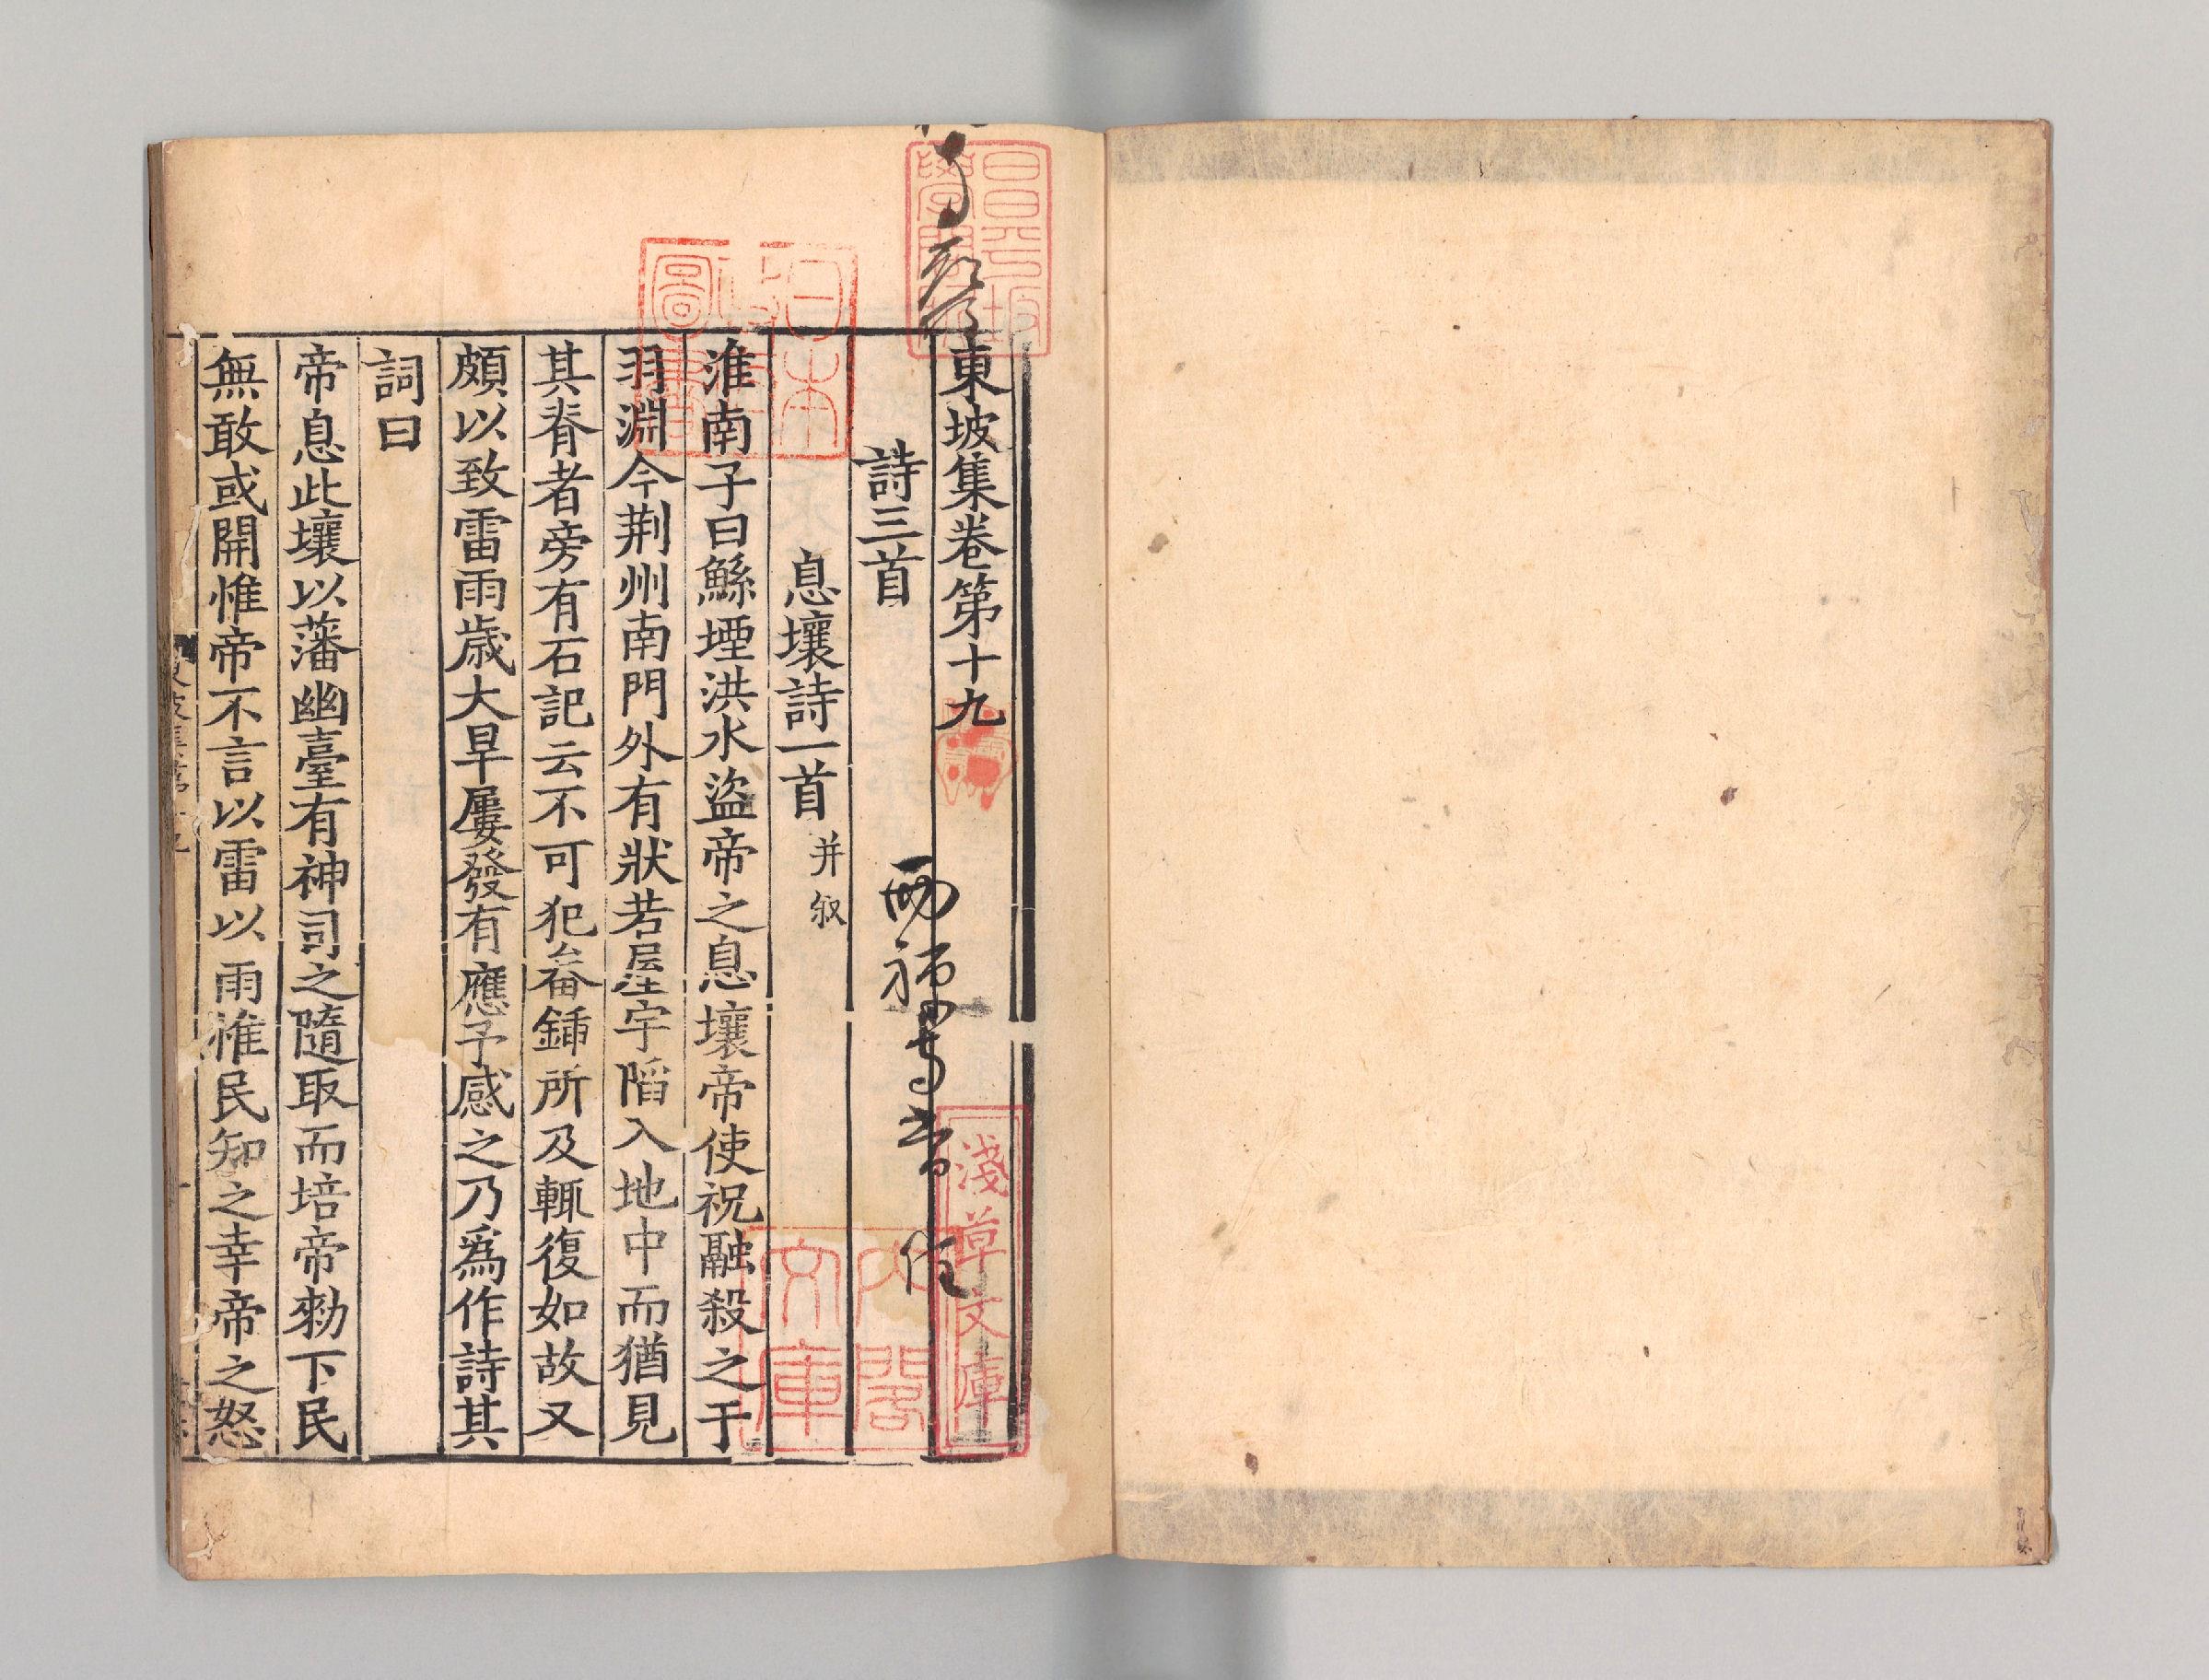 東坡集卷第十九
詩三首
息壤詩一首 并叙
淮南子曰鯀堙洪水盜帝之息壤帝使祝融殺之于
羽淵今荆州南門外有狀若屋宇陷入地中而猶見
其脊者旁有石記云不可犯畚鍤所及輒復如故又
頗以致雷雨歳大旱屢發有應予感之乃爲作詩其
詞曰
帝息此壤以藩幽臺有神司之隨取而培帝勑下民
無敢或開惟帝不言以雷以雨惟民知之幸帝之怒
日本政府圖書
淺草文庫
內閣文庫